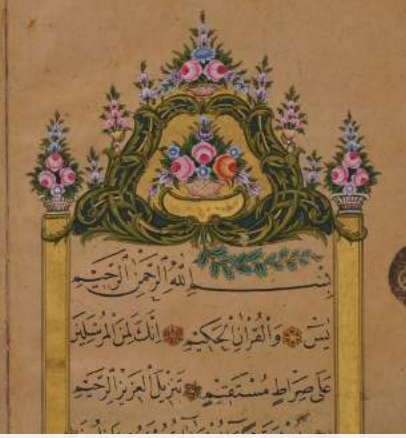 بِسْمِ اللّٰهِ الرَّحْمٰنِ الرَّحِيمِ
يٰسٓ وَالْقُرْاٰنِ الْحَكِيمِ اِنَّكَ لَمِنَ الْمُرْسَلِينَ
عَلٰى صِرَاطٍ مُسْتَقِيمٍ تَنْزِيلَ الْعَزِيزِ الرَّحِيمِ